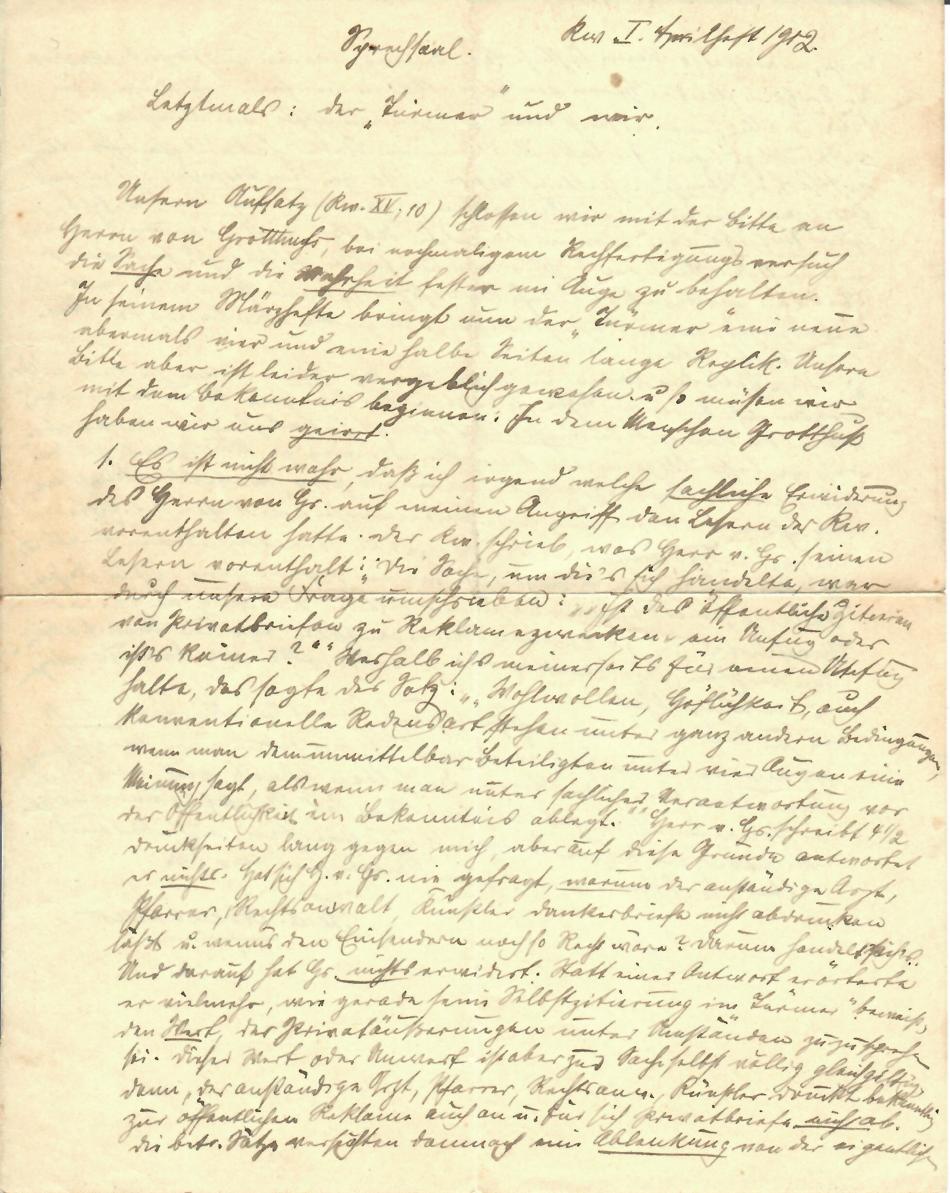 Sprechsaal. Kw I. Aprilheft 1902.
Letztmals: der „Türmer“ und wir.
Unsern Aufsatz (Kw. XV, 10) schlossen wir mit der Bitte an
Herrn von Grotthuss, bei nochmaligem Rechfertigungsversuch
die Sache und die Wahrheit fester im Auge zu behalten.
In seinem Märzhefte bringt nun der „Türmer“ eine neue
abermals vier und eine halbe Seiten lange Replik. Unsere
Bitte aber ist leider vergeblich gewesen u. so müßen wir
mit dem Bekenntnis beginnen: In dem Menschen Grotthuß
haben wir uns geirrt.
1. Es ist nicht wahr, daß ich irgend welche sachliche Erwiderung
des Herrn von Gr. auf meinen Angriff den Lesern des Kw.
vorenthalten hatte. Der Kw. schrieb, was Herr v. Gr. seinen
Lesern vorenthält: „Die Sache, um die's sich handelte, war
durch unsere Frage umschrieben: „Ist das öffentliche Zitieren
von Privatbriefen zu Reklamezwecken ein Unfug oder
ist's keiner?“ Weshalb ich's meinerseits für einen Unfug
halte, das sagte der Satz: „Wohlwollen, Höflichkeit, auch
konventionelle Redensart stehen unter ganz andern Bedingungen,
wenn man dem unmittelbar Beteiligten unter vier Augen eine
Meinung sagt, als wenn man unter sachlicher Verantwortung vor
der Öffentlichkeit ein Bekenntnis ablegt.“ Herr v. Gr. schreibt 4 1/2
Druckseiten lang gegen mich, aber auf diese Gründe antwortet
er nichts. Hat sich H. v. Gr. nie gefragt, warum der anständige Arzt,
Pfarrer, Rechtsanwalt, Künstler Dankesbriefe nicht abdrucken
läßt u. wenns den Einsendern noch so Recht wäre? Darum handelt sich's.
Und darauf hat Gr. nichts erwidert. Statt einer Antwort erörterte
er vielmehr, wie gerade seine Selbstzitierung im „Türmer“ beweist,
den Wert, der Privatäußerungen unter Umständen zuzusprechen
sei. Dieser Wert oder Unwert ist aber zur Sache selbst völlig gleichgültig,
denn, der anständige Arzt, Pfarrer, Rechtsanw., Künstler druckt bekanntlich
zur öffentlichen Reklame auch an u. für sich Privatbriefe nicht ab.
Die betr. Sätze versuchten demnach eine Ablenkung von der eigentlichen